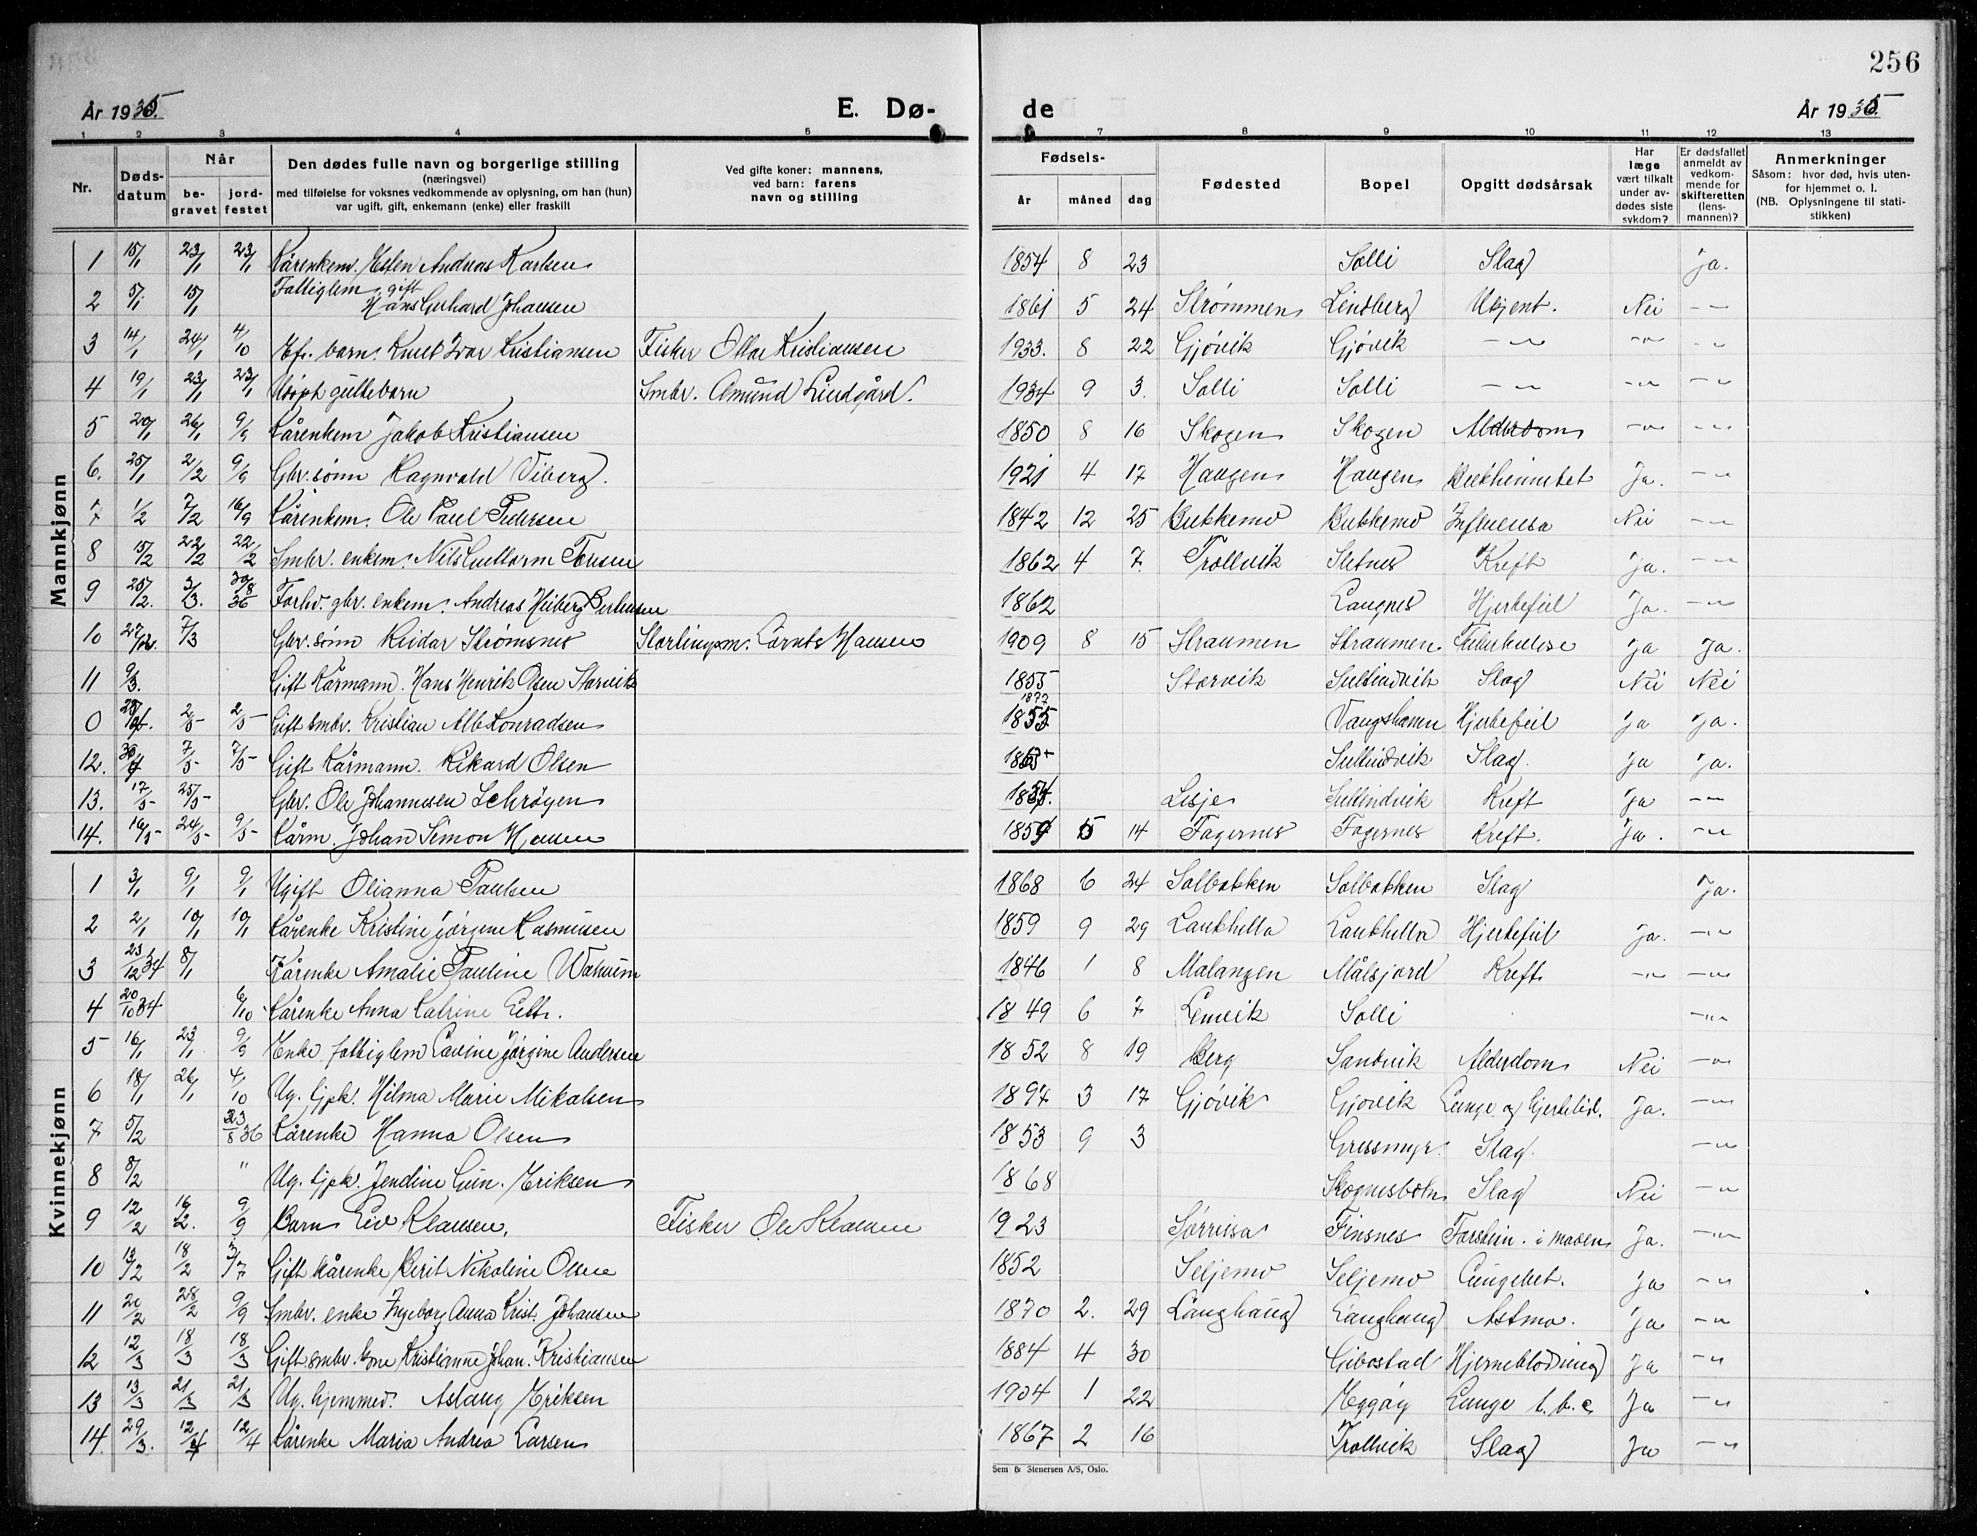 256
År 1935. E. Dø- de År 1935.
1 2 3 4 5 7 8 9 10 11 12 13
Nr. Døds-datum Når be-gravet jord-festet
Den dødes fulle navn og borgerlige stilling
(næringsvei)
med tilføielse for voksnes vedkommende av oplysning, om han (hun)
var ugift, gift, enkemann (enke) eller fraskilt
Ved gifte koner: mannens,
ved barn: farens
navn og stilling
Fødsels- år måned dag
Fødested
Bopel
Opgitt dødsårsak
Har læge vært tilkalt under av-dødes siste sykdom?
Er dødsfallet anmeldt av vedkom-mende for skifteretten (lens-mannen)?
Anmerkninger
Såsom: hvor død, hvis uten-for hjemmet o. l.
(NB. Oplysningene til stati-stikken)
Mannkjønn
1 15/1 23/1 23/1 Kårenkem. Esten Andreas Karlsen 1854 8 23 Solli Slag Ja.
2 5/1 15/1 Fattiglem gift Hans Gerhard Johansen 1861 5 24 Strømmen Lindberg Ukjent. Nei -"-
3 14/1 24/1 4/10 Ef. barn. Knut Ivar Kristiansen Fisker Ottar Kristiansen 1933. 8 22 Gjøvik Gjøvik -"- -"- -"-
4 19/1 23/1 23/1 Udøpt guttebarn Smbr. Amund Lindgård. 1934 9 3. Solli Solli -"- -"- -"-
5 20/1 26/1 9/9 Kårenkem Jakob Kristiansen 1850 8 16 Skogen Skogen Alderdom -"- -"-
6. 25/1 2/2 9/9 Gbr. sønn Ragnvald Viberg. 1921 4 17 Haugen Haugen Brekhinnebet Ja. -"-
7 1/2 7/2 16/9 Kårenkem. Ole Paul Pedersen 1842 12 25 Bukkemo Bukkemo Influensa Nei -"-
8 15/2 22/2 22/2 Smbr. enkem. Nils Guttorm Tonsen 1862 4 7. Trollvik Sletnes Kreft Ja. -"-
9 25/2. 3/3. 30/8 36 Forhv. gbr. enkem. Andreas Heiberg Berthusen 1862 Langnes Hjertefeil Ja. -"-
10 27/2. 7/3 Gbr. sønn Reidar Strømsnes Stortingsm. Cornts Hansen 1909 8 15 Straumen Straumen Tuberkulose Ja Ja.
11 9/3. Gift Kårmann. Hans Henrik Olsen Storvik 1855 Storvik Sultindvik Slag Nei Nei
0 25/4. 2/5 2/5 Gift smbr. Kristian Alb Konradsen 1877 1855 Vangshamn Hjertefeil Ja Ja.
12. 30/4 7/5 7/5 Gift Kårmann. Rikard Olsen 1865 Sultindvik Slag. Ja Ja.
13. 17/5 25/5 Gbr. Ole Johannesen Schrøyen 1854. Lesje Sultindvik Kreft Ja -"-
14. 16/5 24/5 9/5 Kårm. Johan Simon Hansen 1859 5 14 Fagernes Fagernes Kreft. Ja. -"-
Kvinnekjønn
1 3/1 9/1 9/1 Ugift Olianna Paulsen 1868 6 24 Solbakken Solbakken Slag Ja.
2 2/1 10/1 10/1 Kårenke Kristine Jørgine Rasmusen 1859 9 29 Laukhella Laukhella Hjertefeil Ja. -"-
3 23/12 34 8/1 Kårenke Amalie Pauline Waheim 1846 1 8 Malangen Målsfjord Kreft -"- -"-
4 20/10 34 6/10 Kårenke Anna Catrine Eltb. 1849 6 7 Lenvik Solli -"-
5 16/1 23/1 9/9 Enke fattiglem Lavine Jørgine Andersen 1852 8 19 Berg Sandvik Alderdom Nei -"-
6 18/1 26/1 4/10 Ug. tjpk. Hilma Marie Mikalsen 1894 3 17 Gjøvik Gjøvik Lunge og hjertelid. Ja. -"-
7 5/2 23/8 36 Kårenke Hanna Olsen 1853 9 3 Gressmyr. Slag. -"-
8 8/2 " Ug. tjpk. Jendine Gun. Eriksen 1868 Skognesbotn Slag Nei -"-
9 12/2 16/2. 9/9 Barn Liv Klausen, Fisker Ole Klausen 1923 Sørreisa Finsnes Forstein. i maven Ja. -"-
10 13/2 18/2 3/7 Gift kårenke Berit Nikoline Olsen 1852 Seljemo Seljemo Lungebet. Ja -"-
11 20/2 28/2 9/9 Smbr. enke Ingeborg Anna Krist. Johansen 1870 2. 29 Langhaug Langhaug Astma. Ja -"-
12 12/3 18/3 18/3 Gift smbr. kone Kristianne Johan. Kristiansen 1884 4 30 Gibostad Hjerneblødning Ja -"-
13 13/3 21/3 21/3 Ug. hjemmev. Aslaug Eriksen 1904 1 22 Eggøy Lunge t.b.c. Ja -"-
14. 29/3. 12/4 12/4 Kårenke Maria Andrea Larsen 1867 2 16 Trollvik Slag Ja -"-
Sem & Stenersen A/S, Oslo.